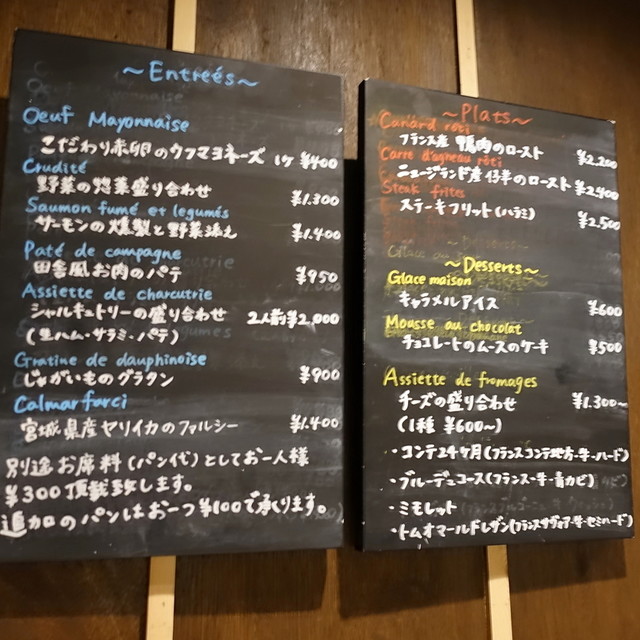 ~Entreés~
Oeuf Mayonnaise
こだわり赤卵のウフマヨネーズ 1ケ ¥400
Crudité
野菜の惣菜盛り合わせ ¥1.300
Saumon fumé et legumés
サーモンの燻製と野菜添え ¥1.400
Paté de campagne
田舎風お肉のパテ ¥950
Assiette de charcutrie
シャルキュトリーの盛り合わせ 2人前¥2,000
(生ハム・サラミ・パテ)
Gratine de dauphinoise
じゃがいものグラタン ¥900
Calmar farci
宮城県産ヤリイカのファルシー ¥1.400
別途お席料(パン代)としてお一人様
¥300頂戴致します。
追加のパンはお一つ¥100で承ります。
~Plats~
Canard rôti
フランス産 鴨肉のロースト ¥2,200
Carre d'agneau rôti
ニュージランド産仔羊のロースト ¥2,400
Steak frites
ステーキフリット(ハラミ) ¥2,500
~Desserts~
Glace maison
キャラメルアイス ¥600
Mousse au chocolat
チョコレートのムースのケーキ ¥500
Assiette de fromages
チーズの盛り合わせ ¥1.300~
(1種 ¥600~)
・コンテ24ヶ月(フランスコンテ地方・牛・ハード)
・ブルーデュコース(フランス・牛・青カビ)
・ミモレット
・トムオマールドレザン(フランスサヴォア・牛・セミハード)